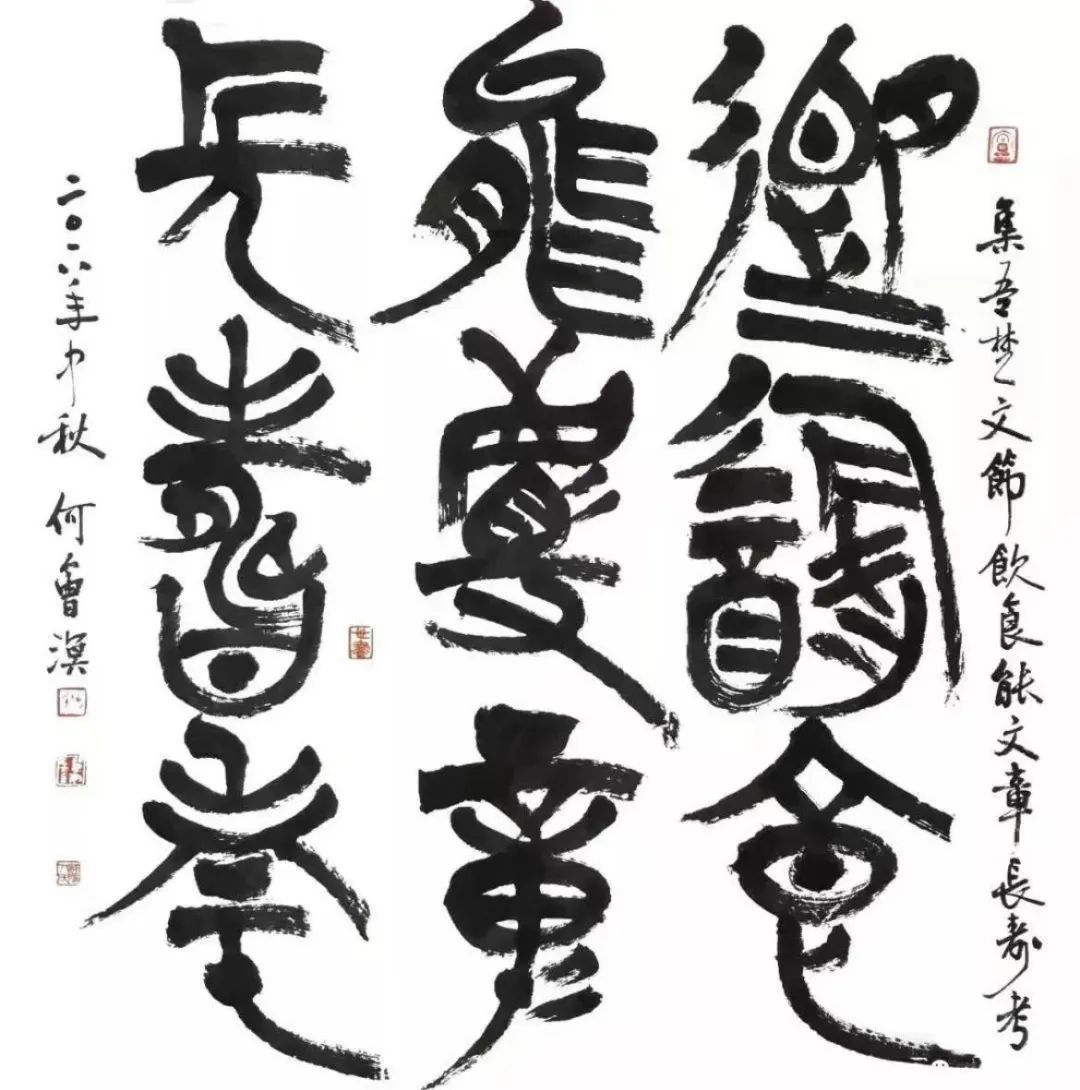 集吾楚文節飲食能文章長壽考
節飲食
能文章
長壽考
二〇一八年中秋 何會